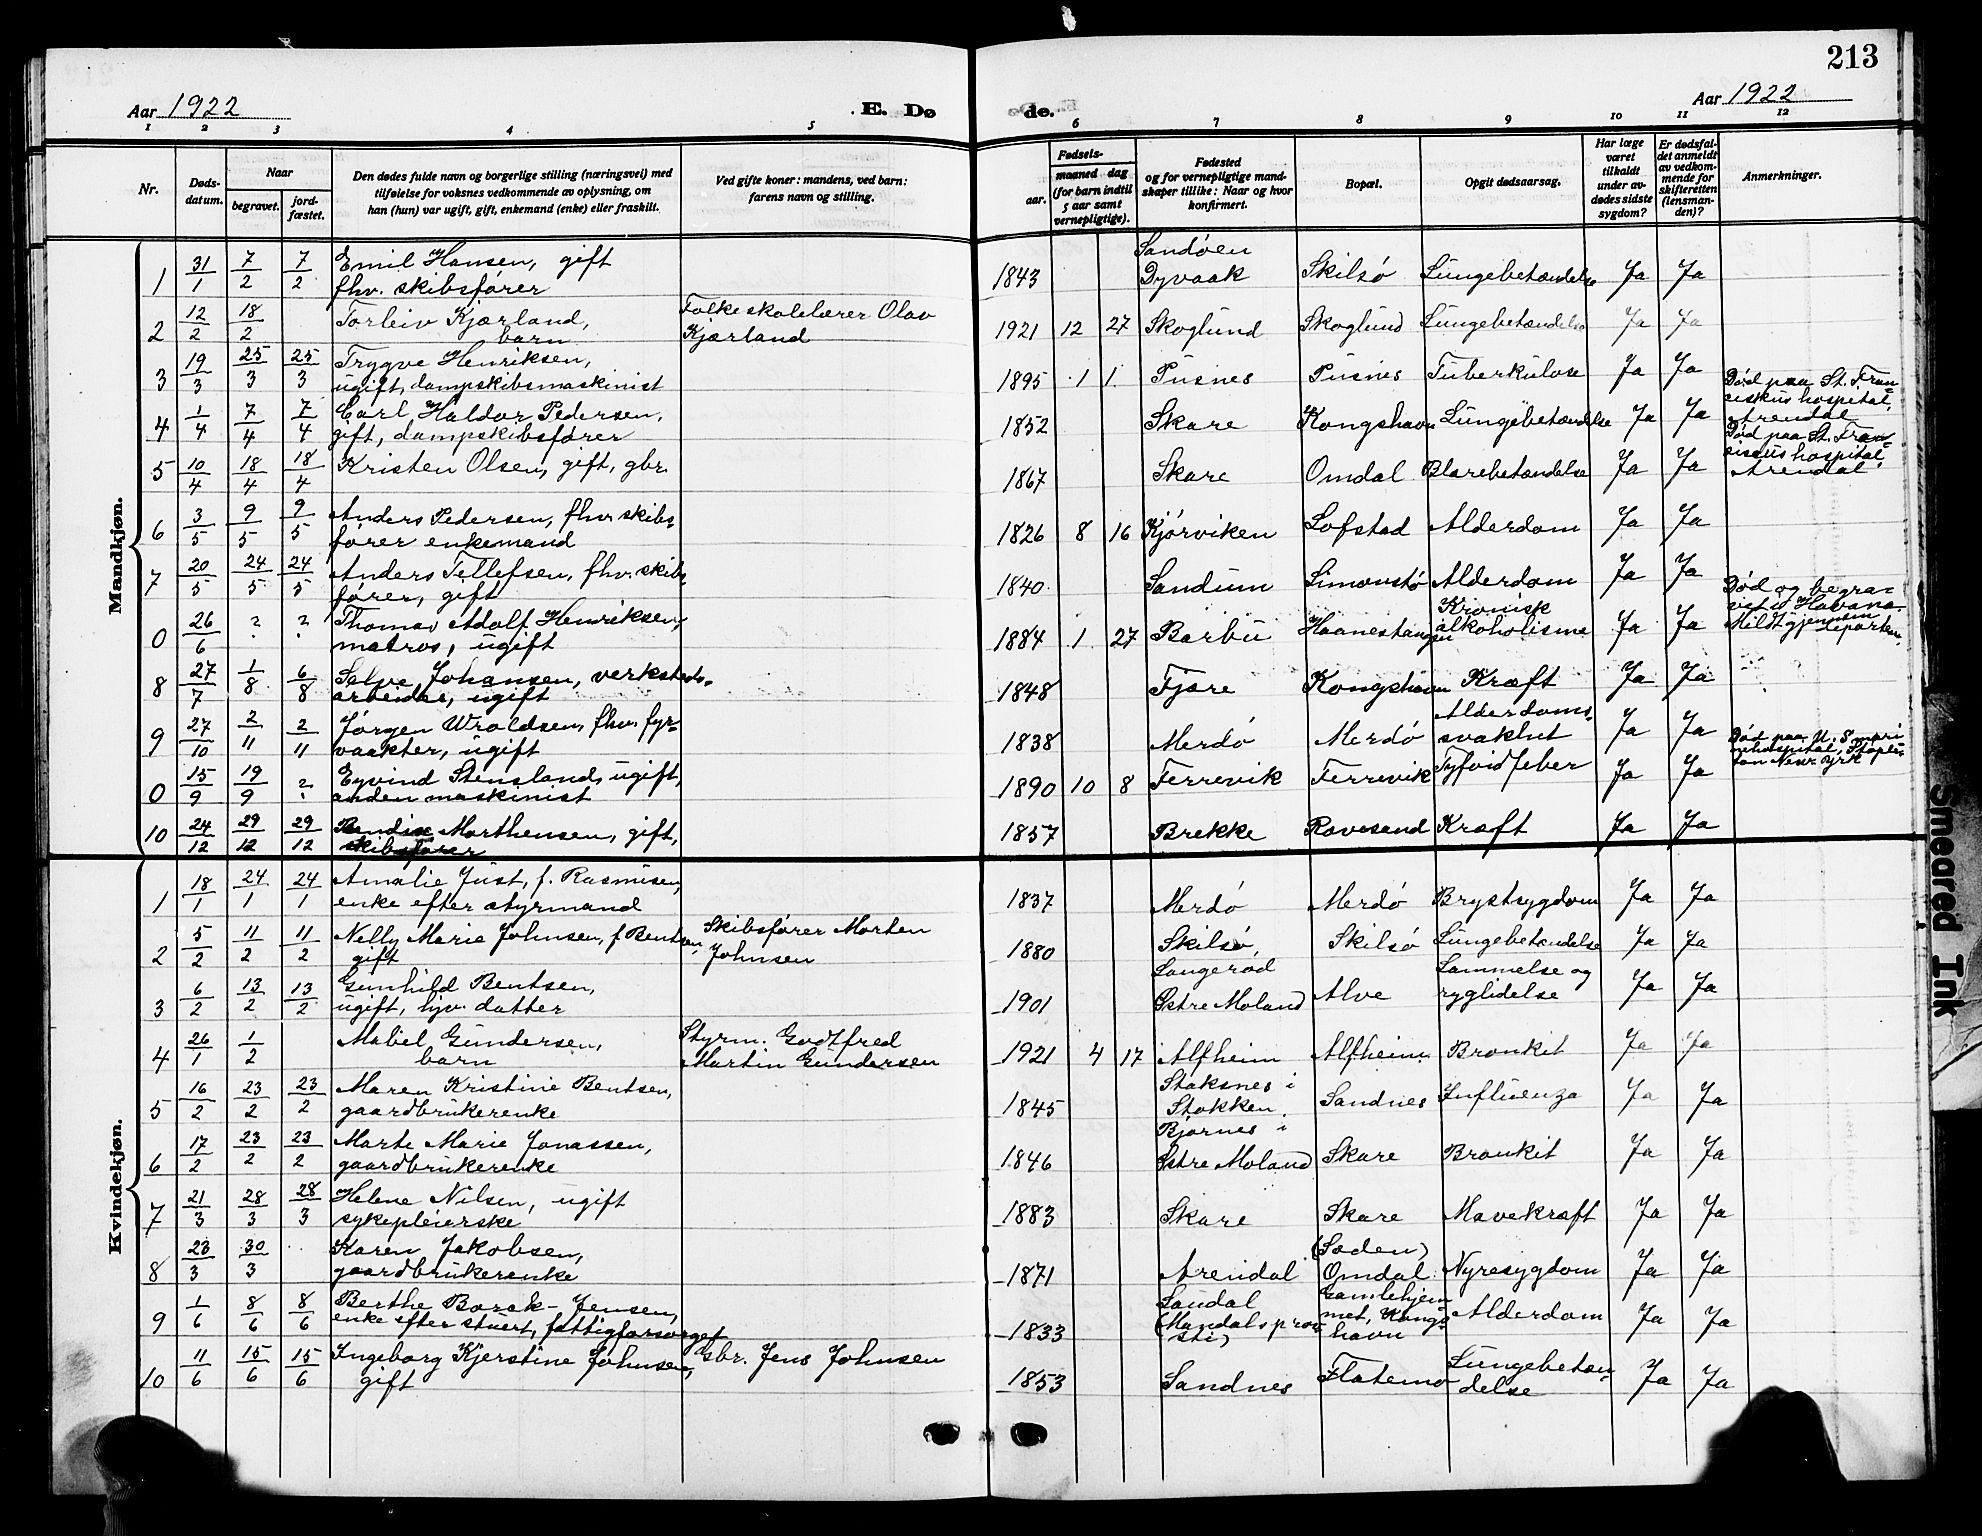 213
Aar 1922
E. Dø
de.
Aar 1922
1 2 3 4 5 6 7 8 9 10 11 12
Nr.
Døds-
datum.
Naar
begravet.
jord-
fæstet.
Den dødes fulde navn og borgerlige stilling (næringsvei) med
tilføielse for voksnes vedkommende av oplysning, om
han (hun) var ugift, gift, enkemand (enke) eller fraskilt.
Ved gifte koner: mandens, ved barn:
farens navn og stilling.
Fødsels-
aar.
maaned dag
(for barn indtil
5 aar samt
vernepligtige).
Fødested
og for vernepligtige mand-
skaper tillike: Naar og hvor
konfirmert.
Bopæl.
Opgit dødsaarsag.
Har læge
været
tilkaldt
under av-
dødes sidste
sygdom?
Er dødsfal-
det anmeldt
av vedkom-
mende for
skifteretten
(lensman-
den)?
Anmerkninger.
Mandkjøn.
1 31/1 7/2 7/2 Emil Hansen, gift
fhv. skibsfører
1843 Sandøen
Dyvaak Skilsø Lungebetændelse Ja Ja
2 12/2 18/2 Torleiv Kjærland,
barn
Folkeskolelærer Olav
Kjærland
1921 12 27 Skoglund Skoglund Lungebetændelse Ja Ja
3 19/3 25/3 25/3 Trygve Henriksen,
ugift, dampskibsmaskinist
1895 1 1 Pusnes Pusnes Tuberkulose Ja Ja
4 1/4 7/4 7/4 Carl Haldor Pedersen,
gift, dampskibsfører
1852 Skare Kongshavn Lungebetændelse Ja Ja
Død paa St. Fran-
ciskus hospital,
Arendal
5 10/4 18/4 18/4 Kristen Olsen, gift, gbr.
1867 Skare Omdal Blærebetændelse Ja Ja
Død paa St. Fran-
ciscus hospital,
Arendal
6 3/5 9/5 9/5 Anders Pedersen, fhv skibs-
fører enkemand
1826 8 16 Kjørviken Lofstad Alderdom Ja Ja
7 20/5 24/5 24/5 Anders Tellefsen, fhv. skibs-
fører, gift
1840 Sandum Simonstø Alderdom Ja Ja
0 26/6 ? ? Thomas Adolf Henriksen,
matros, ugift
1884 1 27 Barbu Haanestangen Kronisk
alkoholisme Ja Ja
Død og begra-
vet i Havana.
Meldt gjennem
departem.
8 27/7 1/8 6/8 Salve Johansen, verksteds-
arbeider, ugift
1848 Fjære Kongshavn Kræft Ja Ja
9 27/10 2/11 2/11 Jørgen Wroldsen, fhv. fyr-
vaakter, ugift
1838 Merdø Merdø Alderdoms-
svakhet Ja Ja
0 15/9 19/9 ? Eyvind Stensland, ugift,
anden maskinist
1890 10 8 Terrevik Terrevik Tyfoidfeber Ja Ja
Død paa U. S.
hospital, Staple-
ton New York
10 24/12 29/12 29/12 Bendix Morthensen, gift,
skibsfører
1857 Brekke Ravesand Kræft Ja Ja
Kvindekjøn.
1 18/1 24/1 24/1 Amalie Just, f. Rasmusen,
enke efter styrmand
1837 Merdø Merdø Brystsygdom Ja Ja
2 5/2 11/2 11/2 Nelly Marie Johnsen, f Bentsen,
gift
Skibsfører Morten
Johnsen
1880 Skilsø Skilsø Lungebetændelse Ja Ja
3 6/2 13/2 13/2 Gunhild Bentsen,
ugift, hjv. datter
1901 Langerød
Østre Moland Alve Lammelse og
ryglidelse Ja Ja
4 26/1 1/2 Mabel Gundersen,
barn
Styrm. Godtfred
Martin Gundersen
1921 4 17 Alfheim Alfheim Bronkit Ja Ja
5 16/2 23/2 23/2 Maren Kristine Bentsen,
gaardbrukerenke
1845 Staksnes i
Stokken. Sandnes Influenza Ja Ja
6 17/2 23/2 23/2 Marte Marie Jonassen,
gaardbrukerenke
1846 Bjørnes i
Østre Moland Skare Bronkit Ja Ja
7 21/3 28/3 28/3 Helene Nilsen, ugift
sykepleierske
1883 Skare Skare Mavekræft Ja Ja
8 23/3 30/3 Karen Jakobsen,
gaardbrukerenke
1871 Arendal (Løden)
Omdal Nyresygdom Ja Ja
9 1/6 8/6 8/6 Berthe Barak-Jensen,
enke efter stuert, fattigforsørget
1833 Laudal
(Mandals prov-
sti) Gamlehjem-
met, Kongs-
havn Alderdom Ja Ja
10 11/6 15/6 15/6 Ingeborg Kjerstine Johnsen,
gift
Gbr. Jens Johnsen
1853 Sandnes Flatemo Lungebetæn-
delse Ja Ja
Smeared Ink